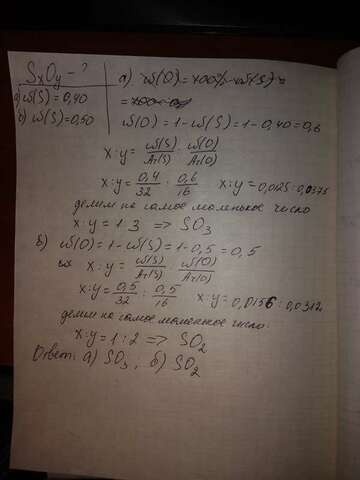 SxOy - ?
а) ω(S) = 0,40
б) ω(S) = 0,50
а) ω(O) = 100% - ω(S) =
ω(O) = 1 - ω(S) = 1 - 0,40 = 0,6
x : y = ω(S)/Ar(S) : ω(O)/Ar(O)
x : y = 0,4/32 : 0,6/16 x : y = 0,0125 : 0,0375
делим на самое маленькое число
x : y = 1 : 3 => SO3
б) ω(O) = 1 - ω(S) = 1 - 0,5 = 0,5
x : y = ω(S)/Ar(S) : ω(O)/Ar(O)
x : y = 0,5/32 : 0,5/16 x : y = 0,0156 : 0,0312
делим на самое маленькое число:
x : y = 1 : 2 => SO2
Ответ: а) SO3, б) SO2